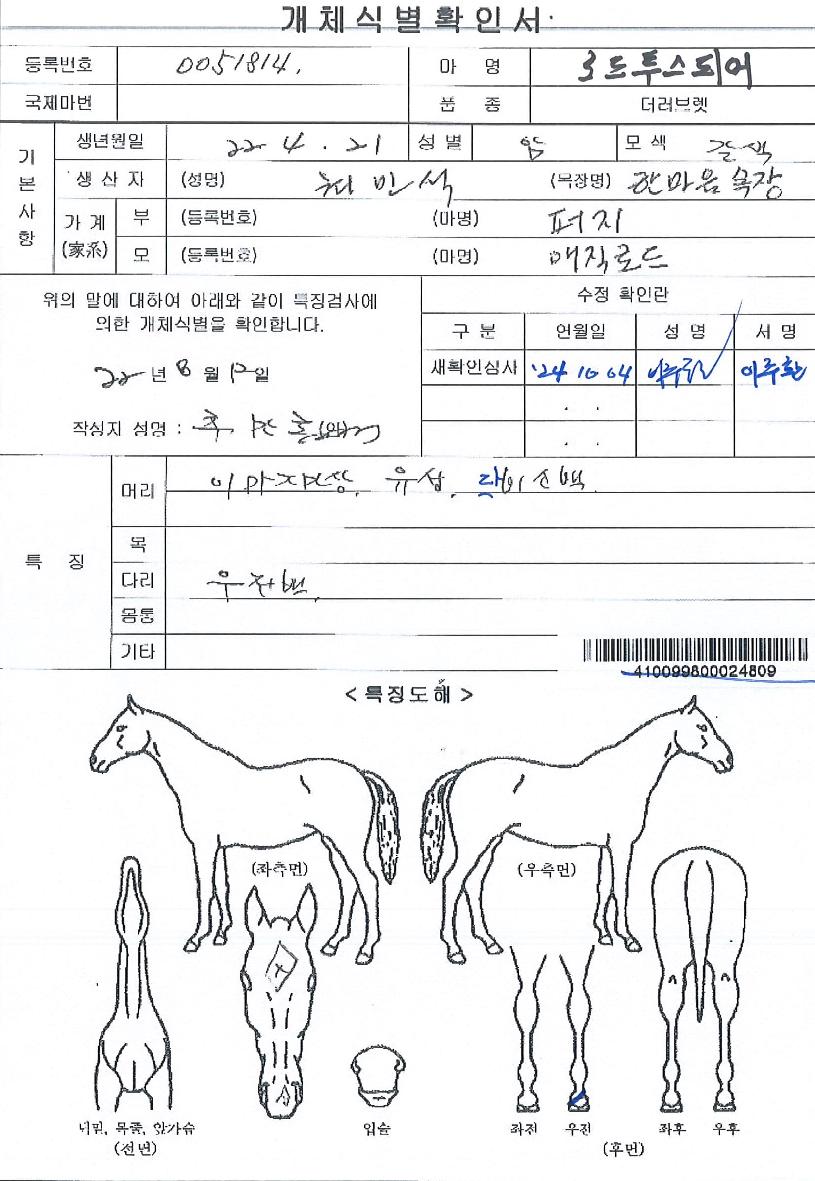 개체식별확인서
등록번호 0051814. 마 명 로드투스피어
국제마번 품 종 더러브렛
기본사항
생년월일 22. 4. 21 성별 암 모색 갈색
생산자 (성명) 최민석 (목장명) 한마음목장
가계(家系) 부 (등록번호) (마명) 퍼지
모 (등록번호) (마명) 매직로드
위의 말에 대하여 아래와 같이 특징검사에
의한 개체식별을 확인합니다.
22년 8월 12일
작성자 성명 :
수정 확인란
구 분 연월일 성 명 서 명
새확인심사 '24 10 04
. .
. .
특 징
머리
목
다리 우전백
몸통
기타
410099800024809
< 특징도해 >
(좌측면) (우측면)
너밑, 목줄, 앞가슴
(전면)
입술
좌전 우전 좌후 우후
(후면)